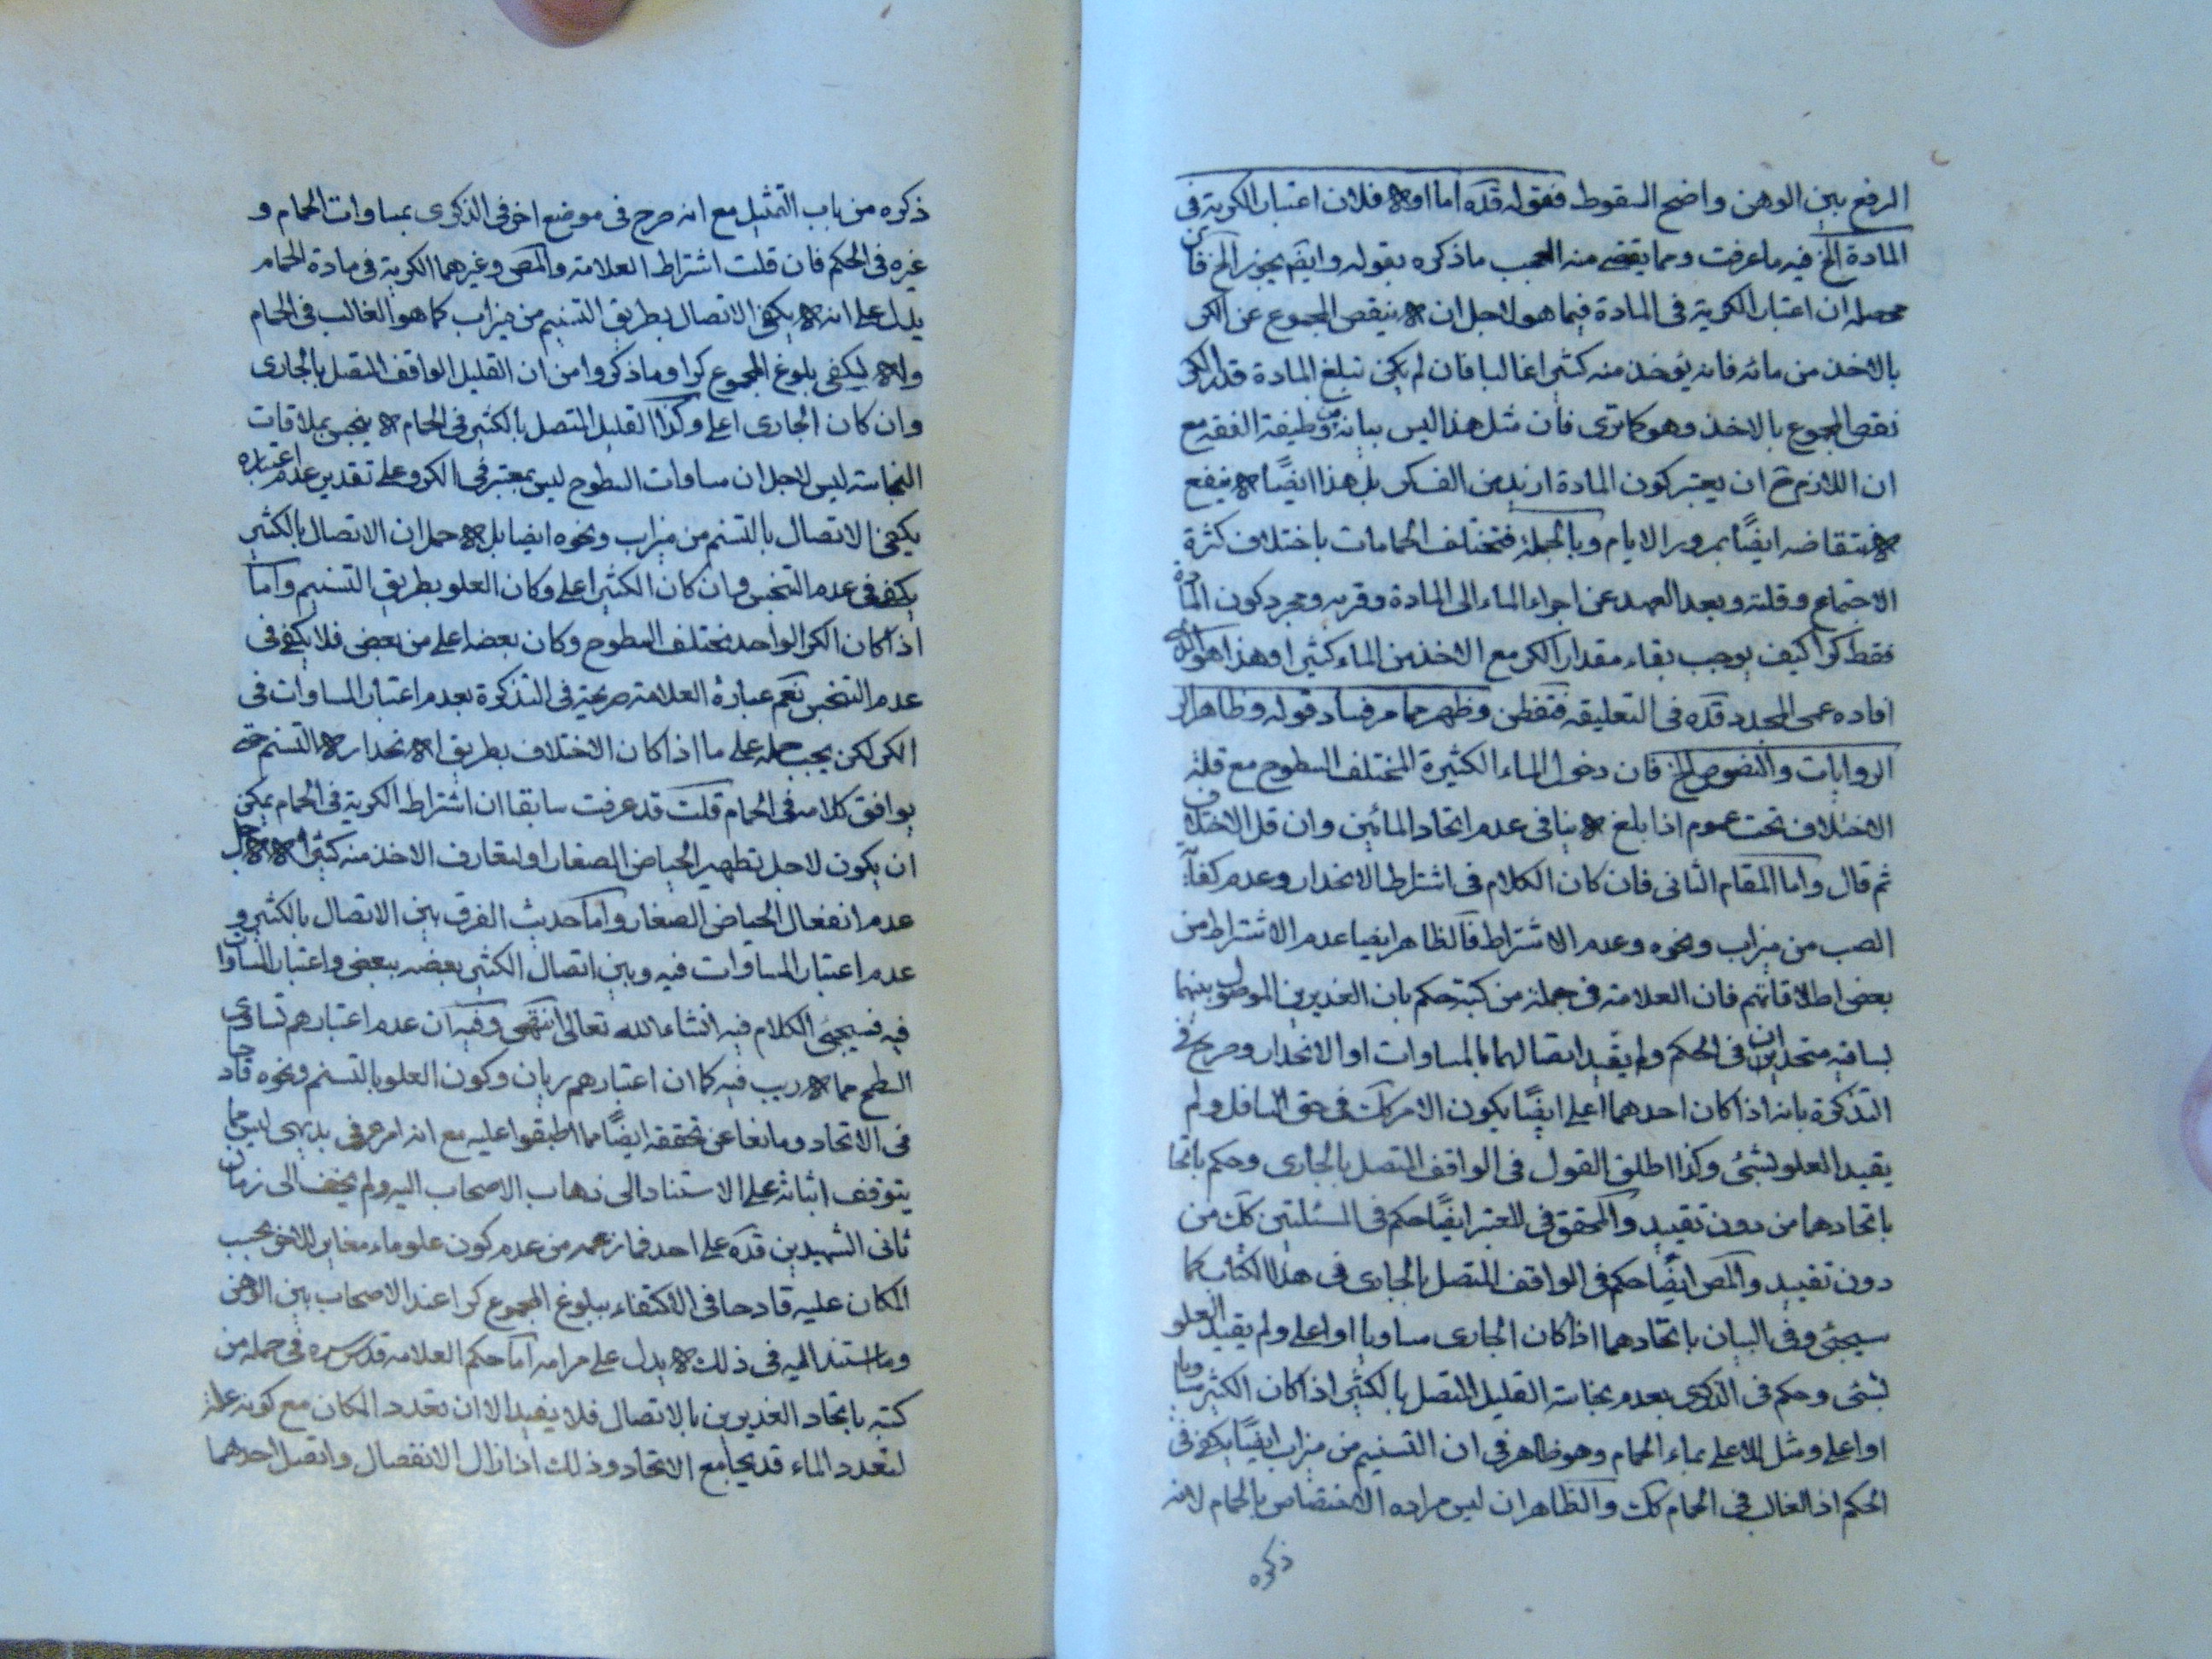 الرفع بين الوهن واضح السقوط فقوله قده اما اولا فلان اعتبار الكرية فى
المادة الخ فيه ما عرفت ومما يقضى منه العجب ما ذكره بقوله وايضم يجوز الخ فان
محصله ان اعتبار الكرية فى المادة فيما هو لاجل ان لا ينقص المجموع عن الكر
بالاخذ من مائه فانه يؤخذ منه كثيرا غالبا فان لم يكن تبلغ المادة قدر الكر
نقص المجموع بالاخذ وهو كما ترى فان مثل هذا ليس بيانه من وظيفة الفقه مع
ان اللازم ح ان يعتبر كون المادة ازيد من الف كر بل هذا ايضًا لا ينفع
لانتقاضه ايضًا بمرور الايام وبالجملة فتختلف الحمامات باختلاف كثرة
الاجتماع وقلته وبعد العهد عن اجراء الماء الى المادة وقربه ومجرد كون المادة
فقط كرا كيف يوجب بقاء مقدار الكر مع الاخذ من الماء كثيرا وهذا هو الذى
افاده عمى المجدد قده فى التعليقه فتفطن وظهر مما مر فساد قوله وظاهر
الروايات والنصوص الخ فان دخول الماء الكثيرة المختلف السطوح مع قلة
الاختلاف تحت عموم اذا بلغ لا ينافى عدم اتحاد المائين وان قل الاختلاف
ثم قال واما المقام الثانى فان كان الكلام فى اشتراط الانحدار وعدم كفاية
الصب من ميزاب ونحوه وعدم الاشتراط فالظاهر ايضا عدم الاشتراط من
بعض اطلاقاتهم فان العلامة فى جملة من كتبه حكم بان الغديرين الموصول بينهما
بساقية متحدان فى الحكم ولم يقيد اتصالهما بالمساوات او الانحدار وصرح فى
التذكرة بانه اذا كان احدهما اعلى ايضًا يكون الامر كك فى حق السافل ولم
يقيد العلو بشئ وكذا اطلق القول فى الواقف المتصل بالجارى وحكم باتحا
باتحادهما من دون تقييد والمحقق فى المعتبر ايضًا حكم فى المسئلتين كك من
دون تقييد والمص ايضًا حكم فى الواقف المتصل بالجارى فى هذا الكتاب كما
سيجئ وفى البيان باتحادهما اذا كان الجارى مساويا او اعلى ولم يقيد العلو
بشئ وحكم فى الذكرى بعدم نجاسة القليل المتصل بالكثير اذا كان الكثير مساويا
او اعلى ومثل للاعلى بماء الحمام وهو ظاهر فى ان التسنيم من ميزاب ايضًا يكفى فى
الحكم اذ الغالب فى الحمام كك والظاهر ان ليس مراده الاختصاص بالحمام لانه
ذكره
ذكره من باب التمثيل مع انه صرح فى موضع اخر فى الذكرى بمساوات الحمام و
غيره فى الحكم فان قلت اشتراط العلامة والمص وغيرهما الكرية فى مادة الحمام
يدل على انه لا يكفى الاتصال بطريق التسنيم من ميزاب كما هو الغالب فى الحمام
والا ليكفى بلوغ المجموع كرا وما ذكروا من ان القليل الواقف المتصل بالجارى
وان كان الجارى اعلى وكذا القليل المتصل بالكثير فى الحمام لا ينجس بملاقات
النجاسة ليس لاجل ان مساوات السطوح ليس بمعتبر فى الكر وعلى تقدير عدم اعتباره
يكفى الاتصال بالتسنم من ميزاب ونحوه ايضا بل لاجل ان الاتصال بالكثير
يكفى فى عدم التنجس وان كان الكثير اعلى وكان العلو بطريق التسنيم واما
اذا كان الكر الواحد مختلف السطوح وكان بعضه اعلى من بعض فلا يكفى فى
عدم التنجس نعم عبارة العلامة صريحة فى التذكرة بعدم اعتبار المساوات فى
الكر لكن يجب حمله على ما اذا كان الاختلاف بطريق الانحدار لا التسنم حتى
يوافق كلامه فى الحمام قلت قد عرفت سابقا ان اشتراط الكرية فى الحمام يمكن
ان يكون لاجل تطهير الحياض الصغار او لتعارف الاخذ منه كثيرا لا لاجل
عدم انفعال الحياض الصغار واما حديث الفرق بين الاتصال بالكثير و
عدم اعتبار المساوات فيه وبين اتصال الكثير بعضه ببعض واعتبار المساوات
فيه فسيجئ الكلام فيه انشاء الله تعالى انتهى وفيه ان عدم اعتبارهم تساوى
السطح مما لا ريب فيه كما ان اعتبارهم ريان وكون العلو بالتسنم ونحوه قادحا
فى الاتحاد ومانعا عن تحققه ايضًا مما اطبقوا عليه مع انه امر عرفى بديهى ليس مما
يتوقف اثباته على الاستناد الى ذهاب الاصحاب اليه ولم يخف الى زمان
ثانى الشهيدين قده على احد فما زعمه من عدم كون علو ماء مغاير للاخر بحسب
المكان عليه قادحا فى الاكتفاء ببلوغ المجموع كرا عند الاصحاب بين الوهن
وما استند اليه فى ذلك لا يدل على مرامه اما حكم العلامه قدس سره فى جملة من
كتبه باتحاد الغديرين بالاتصال فلا يفيد الا ان تعدد المكان مع كونه علة
لتعدد الماء قد يجامع الاتحاد وذلك اذا زال الانفصال واتصل احدهما